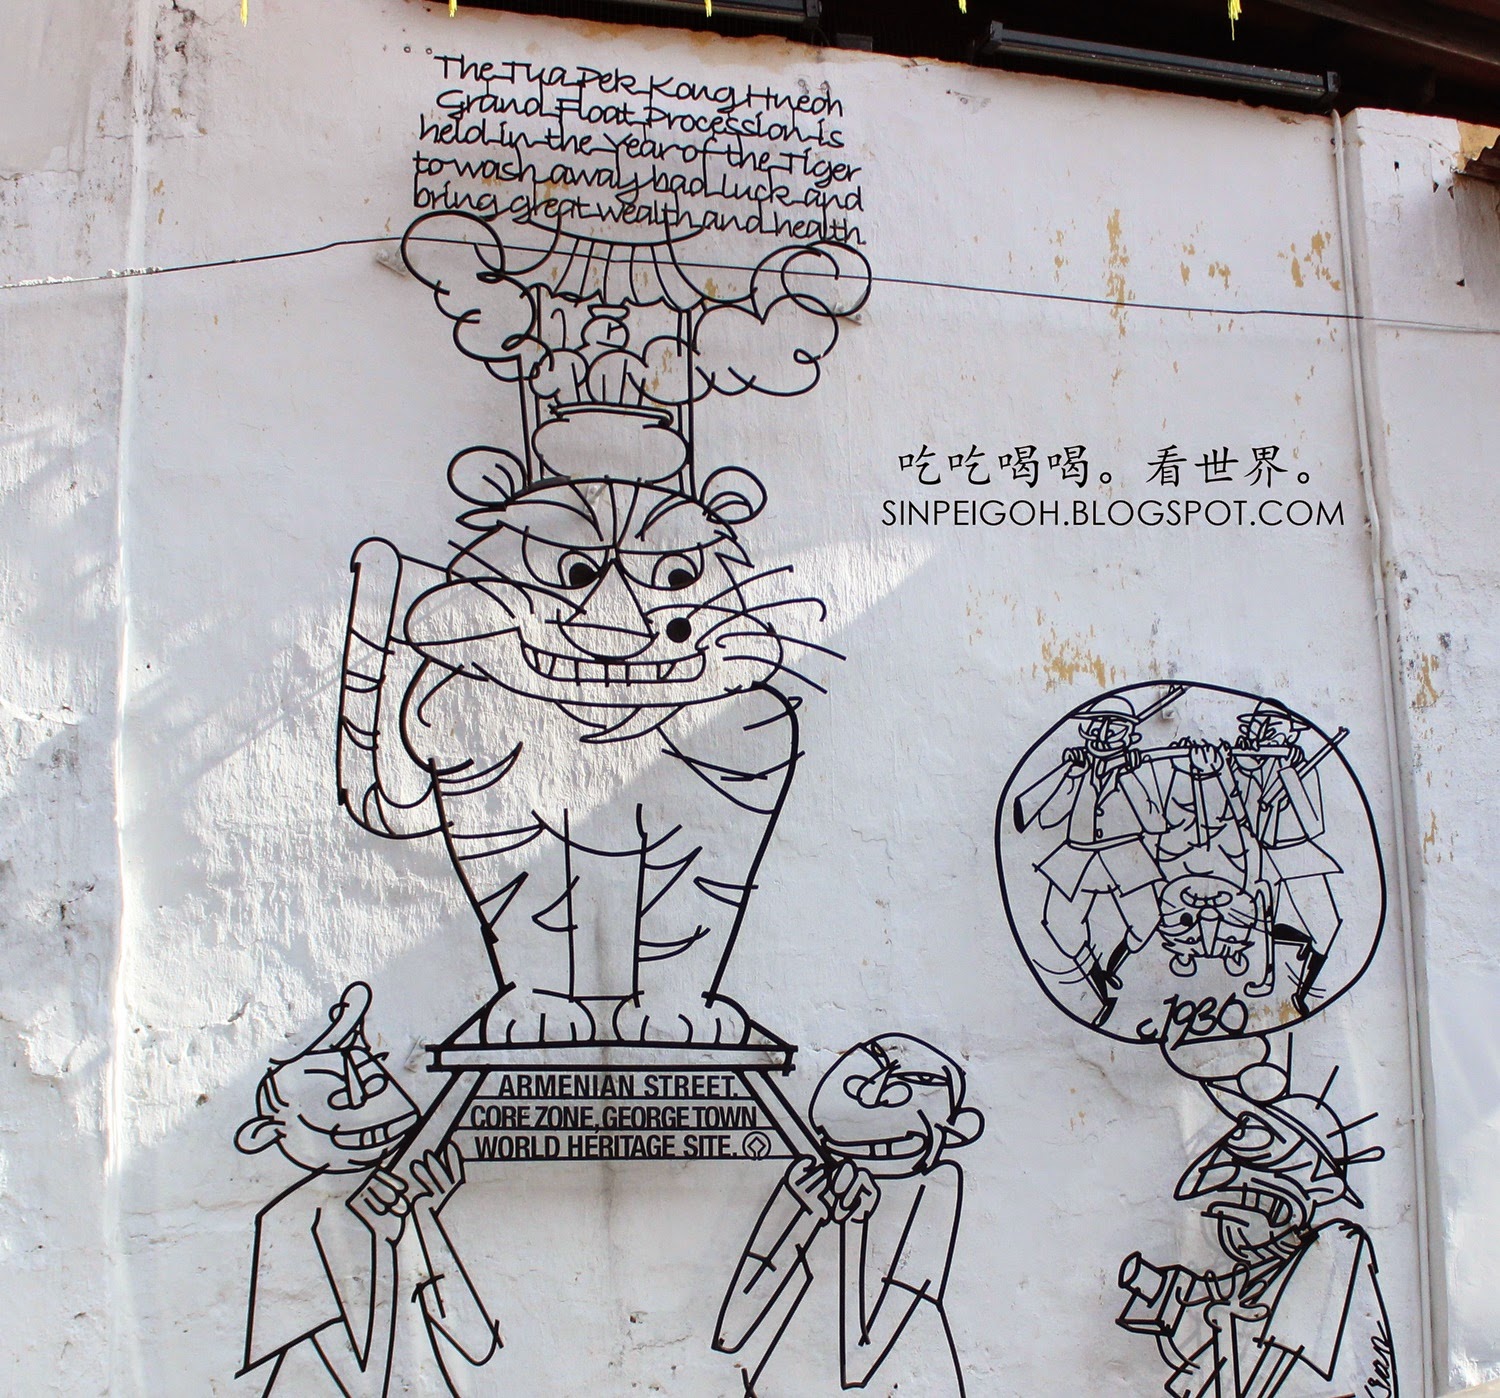 The Tua Pek Kong Hneoh
Grand Float Procession is
held in the Year of the Tiger
to wash away bad luck and
bring great wealth and health
吃吃喝喝。看世界。
SINPEIGOH.BLOGSPOT.COM
c.1930
ARMENIAN STREET.
CORE ZONE, GEORGE TOWN
WORLD HERITAGE SITE.